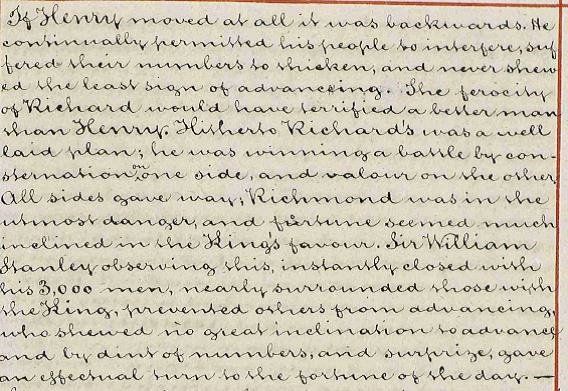 If Henry moved at all it was backwards. He
continually permitted his people to interfere, suf
fered their numbers to thicken, and never shew
ed the least sign of advancing. The ferocity
of Richard would have terrified a better man
than Henry. Hitherto Richard's was a well
laid plan; he was winning a battle by con-
sternation on one side, and valour on the other.
All sides gave way; Richmond was in the
utmost danger, and fortune seemed much
inclined in the King's favour. Sir William
Stanley observing this, instantly closed with
his 3,000 men, nearly surrounded those with
the King, prevented others from advancing,
who shewed no great inclination to advance,
and by dint of numbers, and surprize, gave
an effectual turn to the fortune of the day. —